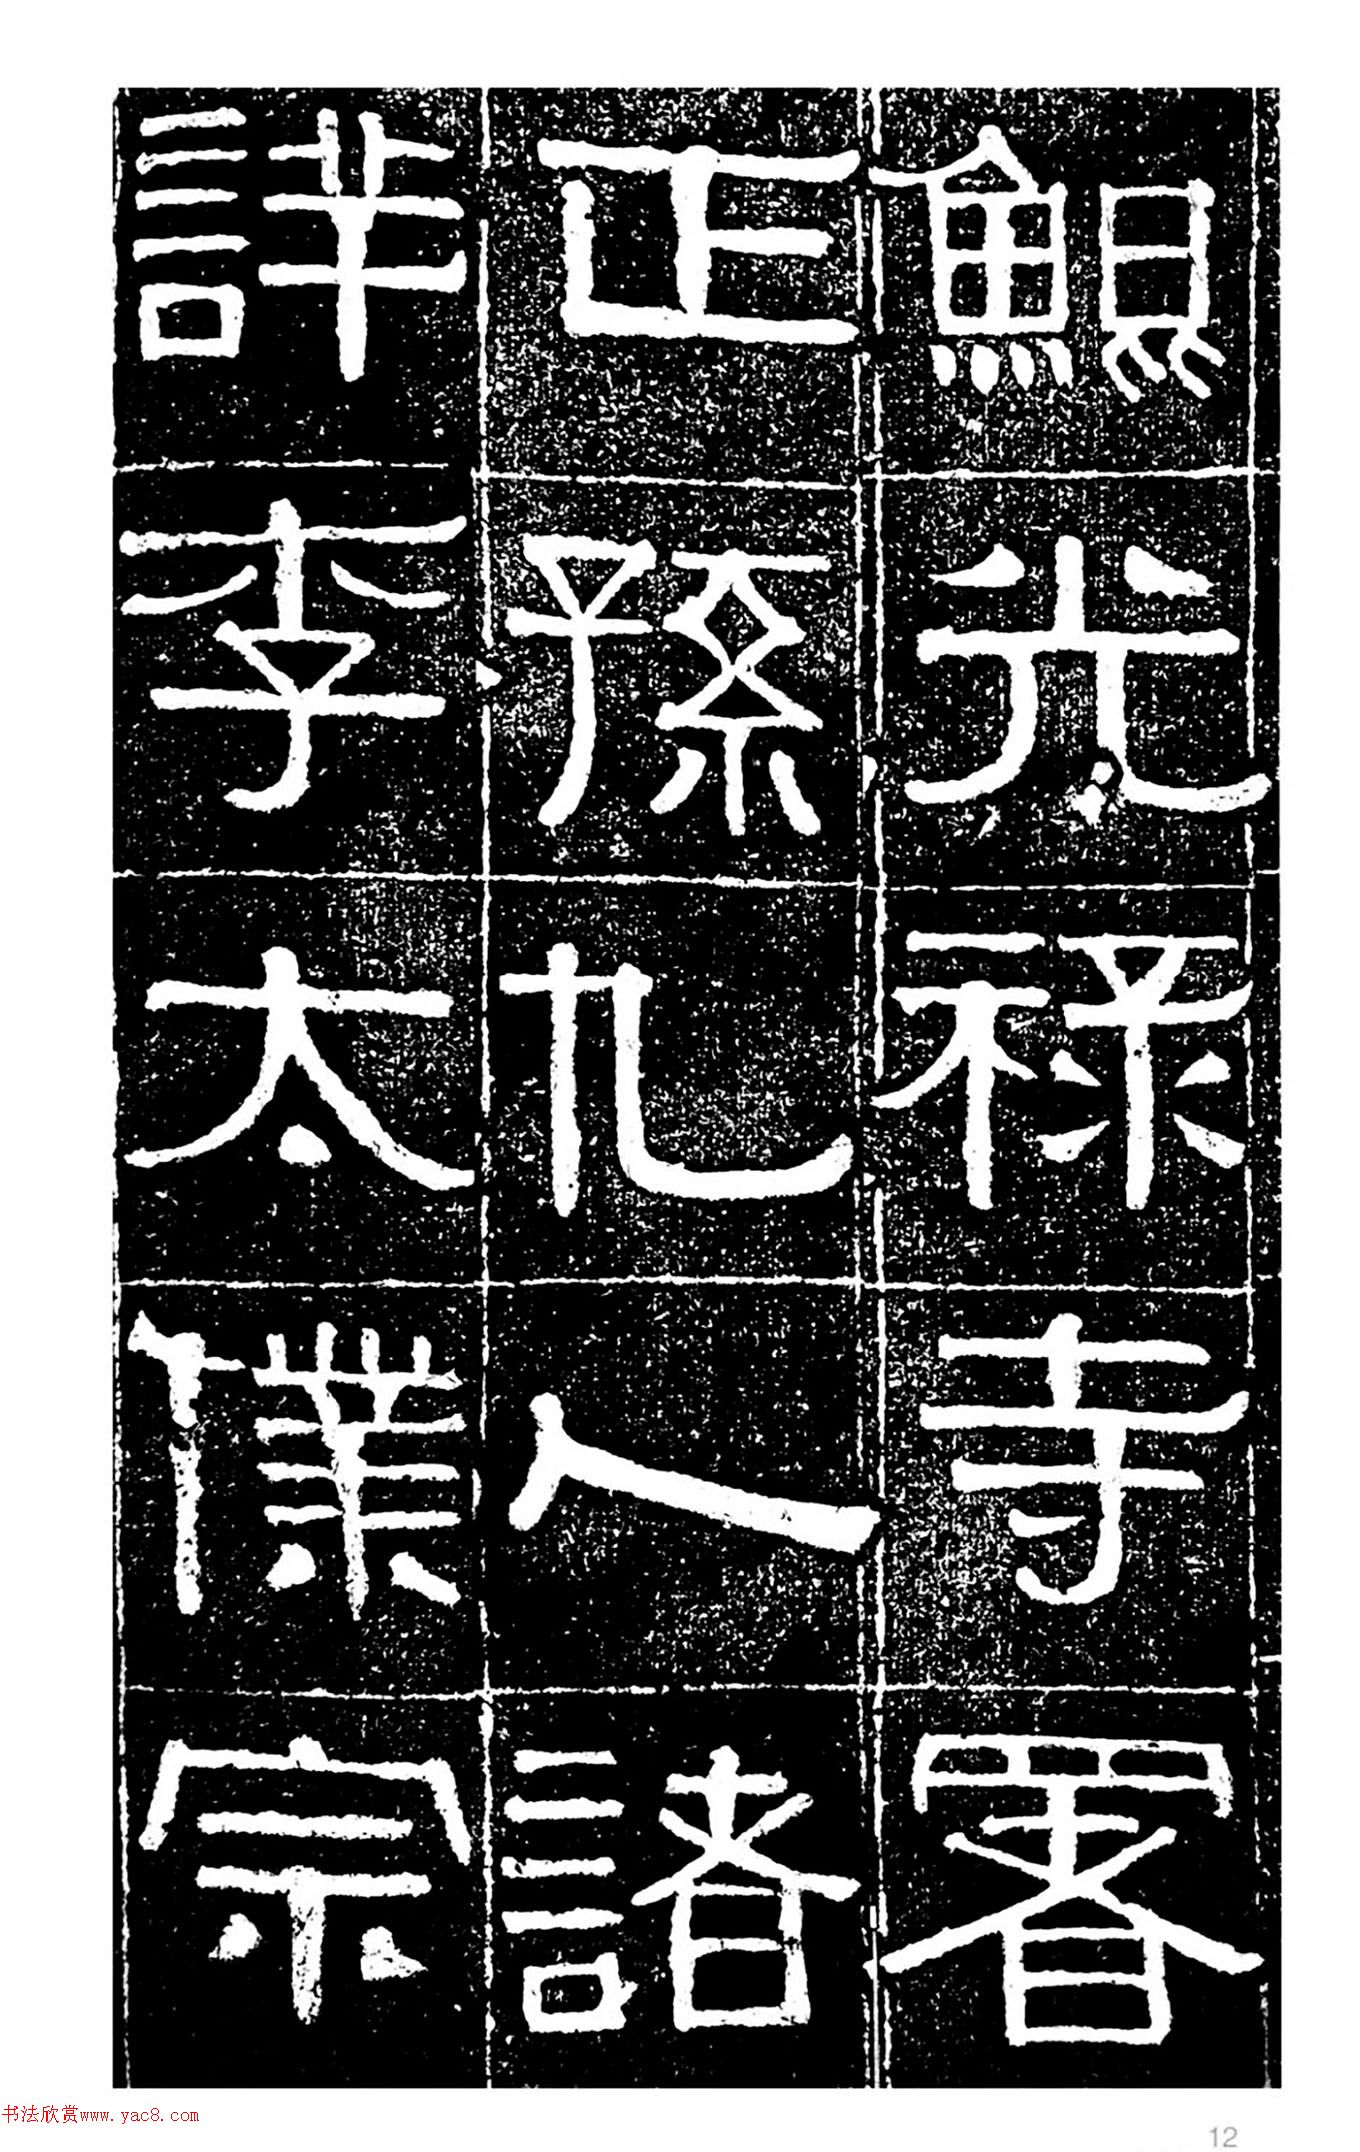 鯤光祿寺署
正孫九人諸
詳李太僕宗
书法欣赏www.yac8.com
12